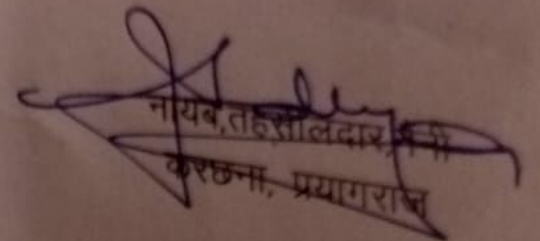 नायब,तहसीलदार,
करछना, प्रयागराज